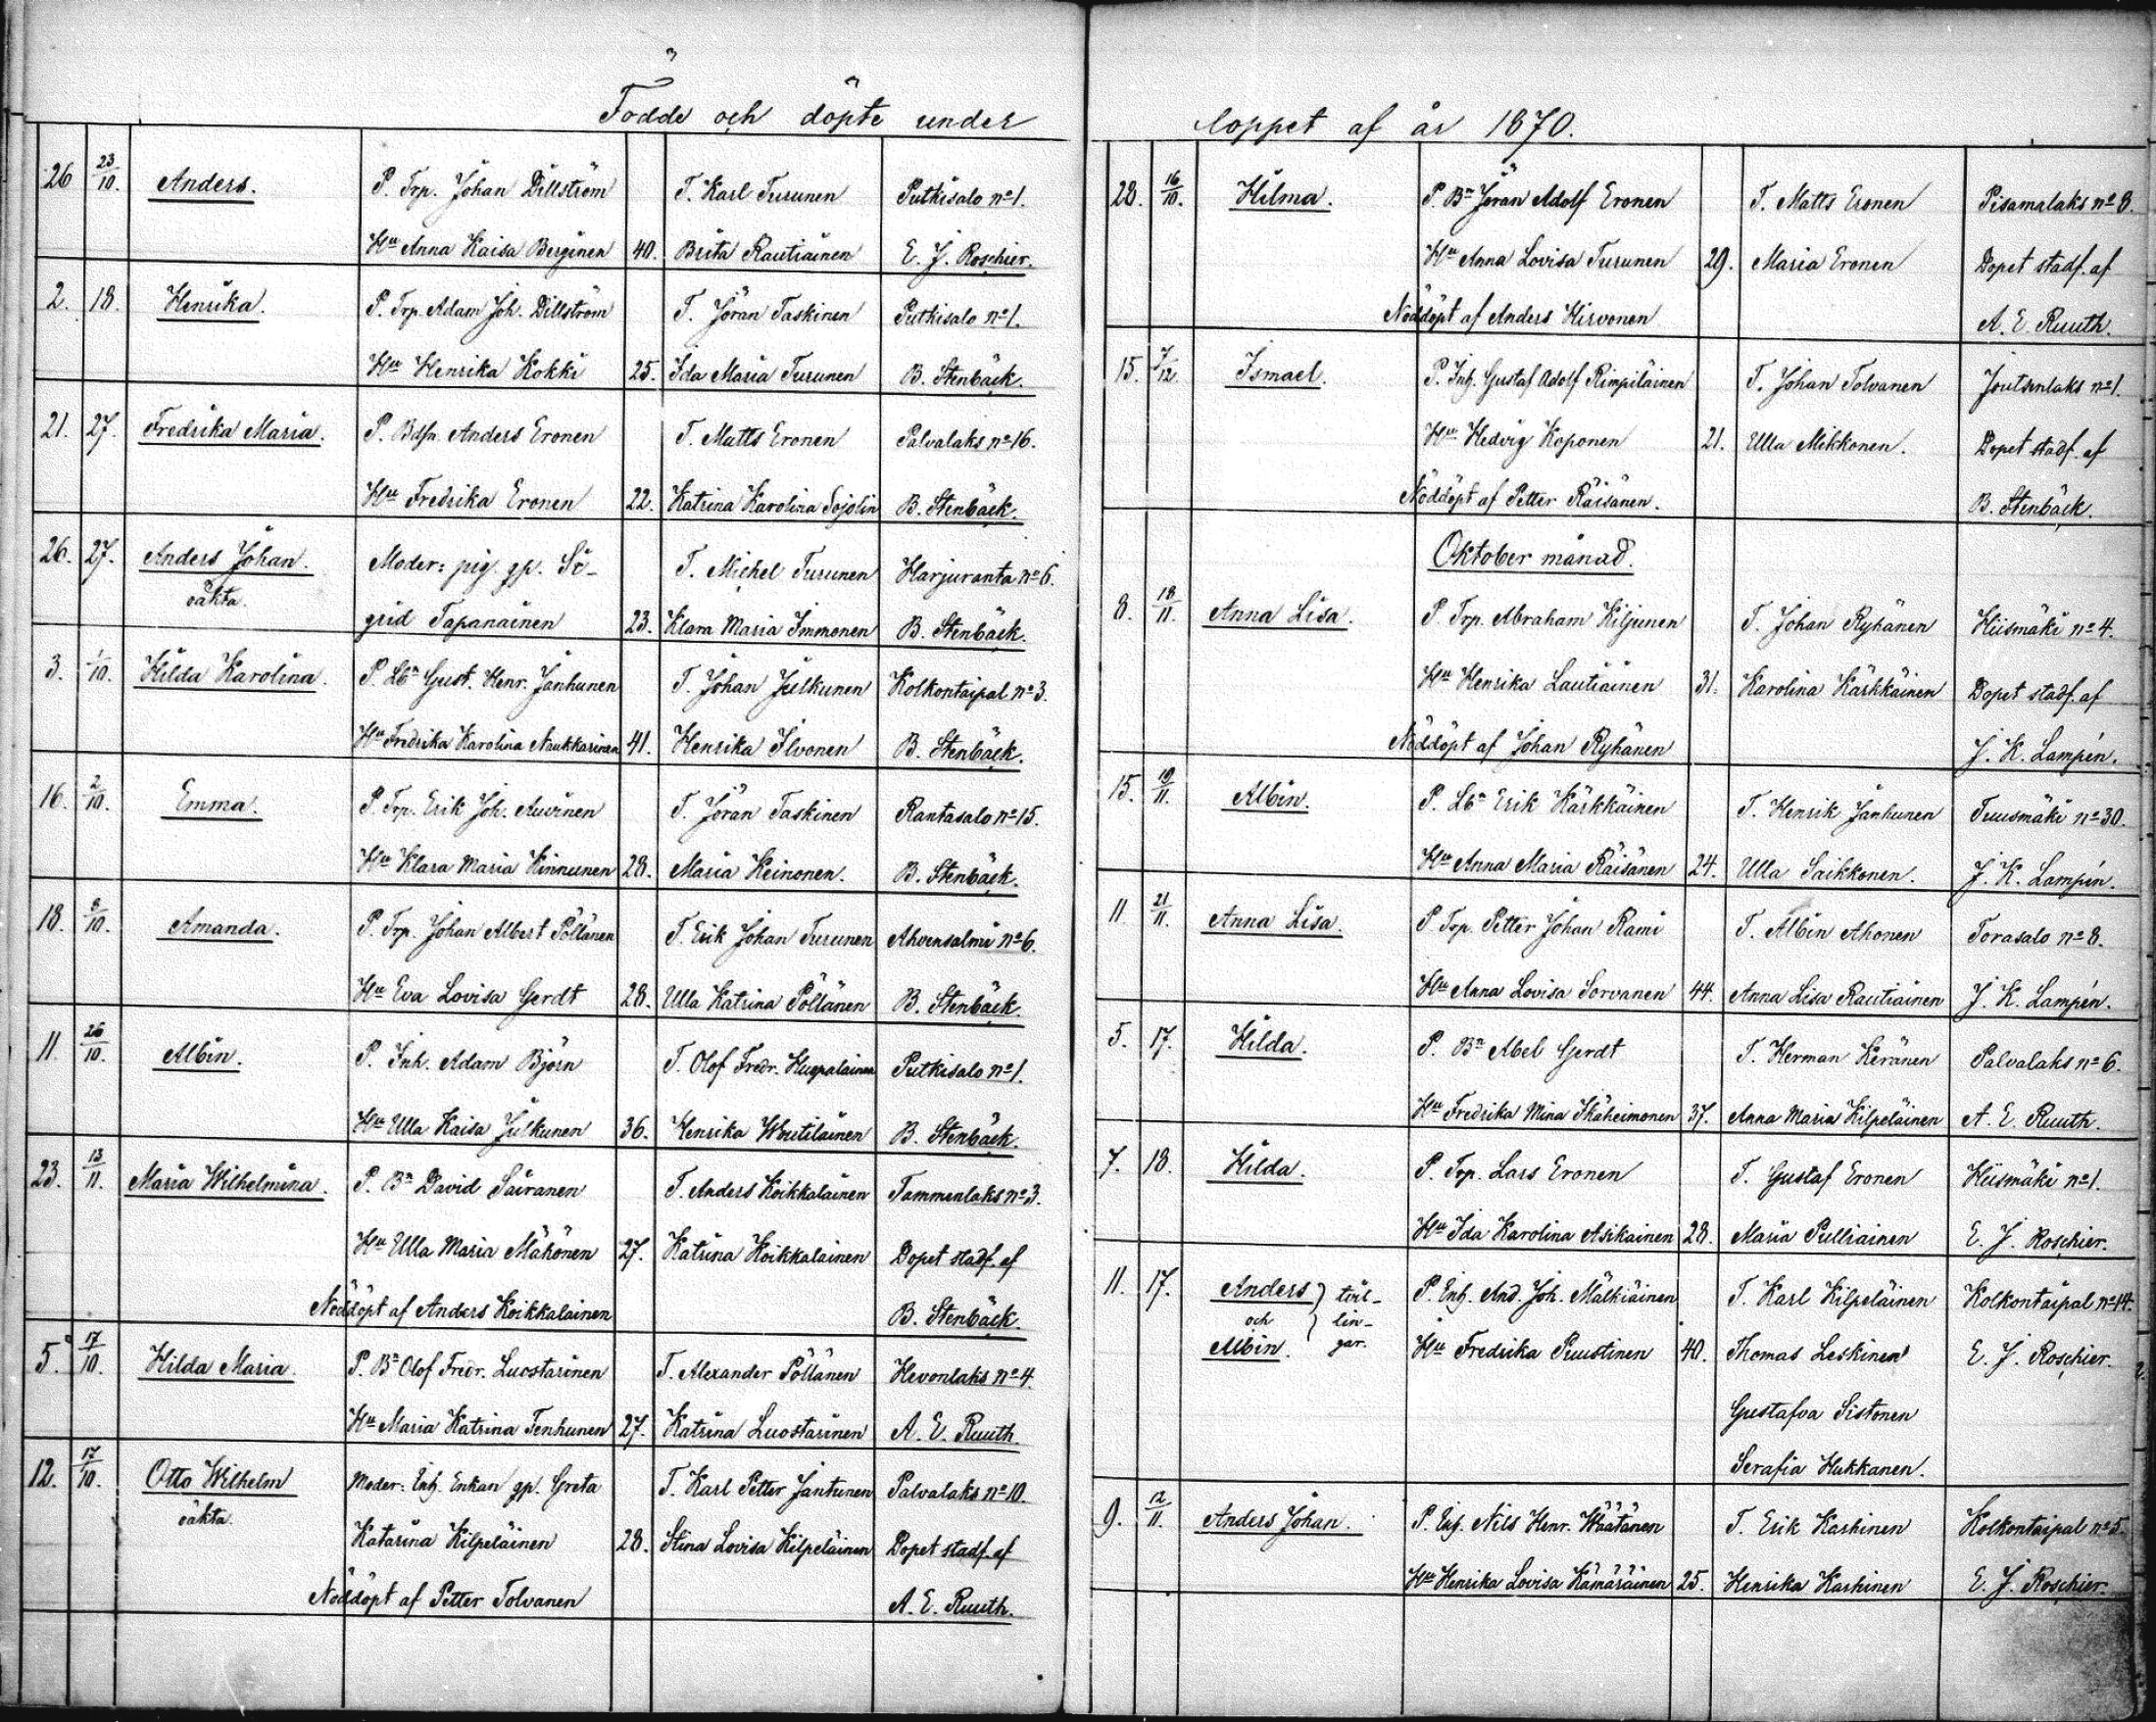 Födde och döpte under
26 23/10. Anders. P. Trp. Johan Dillström T. Karl Turunen Putkisalo no 1.
Hu Anna Kaisa Berginen 40. Brita Rautiainen E. J. Roschier.
2. 18. Henrika. P. Trp. Adam Joh. Dillström T. Jöran Taskinen Putkisalo no 1.
Hu Henrika Kokki 25. Ida Maria Turunen B. Stenbäck.
21. 27. Fredrika Maria. P. Bdsn. Anders Eronen T. Matts Eronen Palvalaks no 16.
Hu Fredrika Eronen 22. Katrina Karolina Sojolin B. Stenbäck.
26. 27. Anders Johan. Moder: pig. gp. Si- T. Michel Turunen Harjuranta no 6.
oäkta. grid Tapanainen 23. Klara Maria Immonen B. Stenbäck.
3. 1/10. Hilda Karolina. P. Lbn Gust. Henr. Janhunen T. Johan Julkunen Kolkontaipal no 3.
Hu Fredrika Karolina Naukkarinen 41. Henrika Ilvonen B. Stenbäck.
16. 2/10. Emma. P. Trp. Erik Joh. Auvinen T. Jöran Taskinen Rantasalo no 15.
Hu Klara Maria Kinnunen 28. Maria Keinonen. B. Stenbäck.
18. 8/10. Amanda. P. Trp. Johan Albert Pöllänen T. Erik Johan Turunen Ahvensalmi no 6.
Hu Eva Lovisa Gerdt 28. Ulla Katrina Pöllänen B. Stenbäck.
11. 26/10. Albin. P. Inh. Adam Björn T. Olof Fredr. Huppalainen Putkisalo no 1.
Hu Ulla Kaisa Julkunen 36. Henrika Woutilainen B. Stenbäck.
23. 13/11. Maria Wilhelmina. P. Bn David Sairanen T. Anders Koikkalainen Tammenlaks no 3.
Hu Ulla Maria Mähönen 27. Katrina Koikkalainen Dopet stadf. af
Nöddöpt af Anders Koikkalainen B. Stenbäck.
5. 17/10. Hilda Maria. P. Bn Olof Fredr. Luostarinen T. Alexander Pöllänen Hevonlaks no 4.
Hu Maria Katrina Tenhunen 27. Katrina Luostarinen A. E. Ruuth.
12. 17/10. Otto Wilhelm Moder: Inh. Enkan gp. Greta T. Karl Petter Jantunen Palvalaks no 10.
oäkta. Katarina Kilpeläinen 28. Stina Lovisa Kilpeläinen Dopet stadf. af
Nöddöpt af Petter Tolvanen A. E. Ruuth.
loppet af år 1870.
28. 16/10. Hilma. P. Bn Jöran Adolf Eronen T. Matts Eronen Pisamalaks no 8.
Hu Anna Lovisa Turunen 29. Maria Eronen Dopet stadf. af
Nöddöpt af Anders Hirvonen A. E. Ruuth.
15. 7/12. Ismael. P. Inh. Gustaf Adolf Rimpiläinen T. Johan Tolvanen Joutsenlaks no 1.
Hu Hedvig Koponen 21. Ulla Mikkonen. Dopet stadf. af
Nöddöpt af Petter Räisänen. B. Stenbäck.
Oktober månad.
8. 18/11. Anna Lisa. P. Trp. Abraham Kiljunen T. Johan Ryhänen Hiismäki no 4.
Hu Henrika Lautiainen 31. Karolina Kärkkäinen Dopet stadf. af
Nöddöpt af Johan Ryhänen J. K. Lampén.
15. 19/11. Albin. P. Lbn Erik Kärkkäinen T. Henrik Janhunen Tuusmäki no 30.
Hu Anna Maria Räisänen 24. Ulla Saikkonen. J. K. Lampén.
11 21/11. Anna Lisa. P. Trp. Petter Johan Rami T. Albin Ahonen Torasalo no 8.
Hu Anna Lovisa Sorvanen 44. Anna Lisa Rautiainen J. K. Lampén.
5. 17. Hilda. P. Bn Abel Gerdt T. Herman Keränen Palvalaks no 6.
Hu Fredrika Mina Ikäheimonen 37. Anna Maria Kilpeläinen A. E. Ruuth.
7. 18. Hilda. P. Trp. Lars Eronen T. Gustaf Eronen Hiismäki no 1.
Hu Ida Karolina Asikainen 28. Maria Pulliainen E. J. Roschier.
11. 17. Anders } tvil- P. Inh. And. Joh. Mälkiäinen T. Karl Kilpeläinen Kolkontaipal no 14.
och lin-
Albin. gar. Hu Fredrika Puustinen 40. Thomas Leskinen E. J. Roschier.
Gustafva Sistonen
Serafia Hukkanen.
9. 12/11. Anders Johan. P. Inh. Nils Henr. Wäätänen T. Erik Karhinen Kolkontaipal no 5.
Hu Henrika Lovisa Kämäräinen 25. Henrika Karhinen E. J. Roschier.